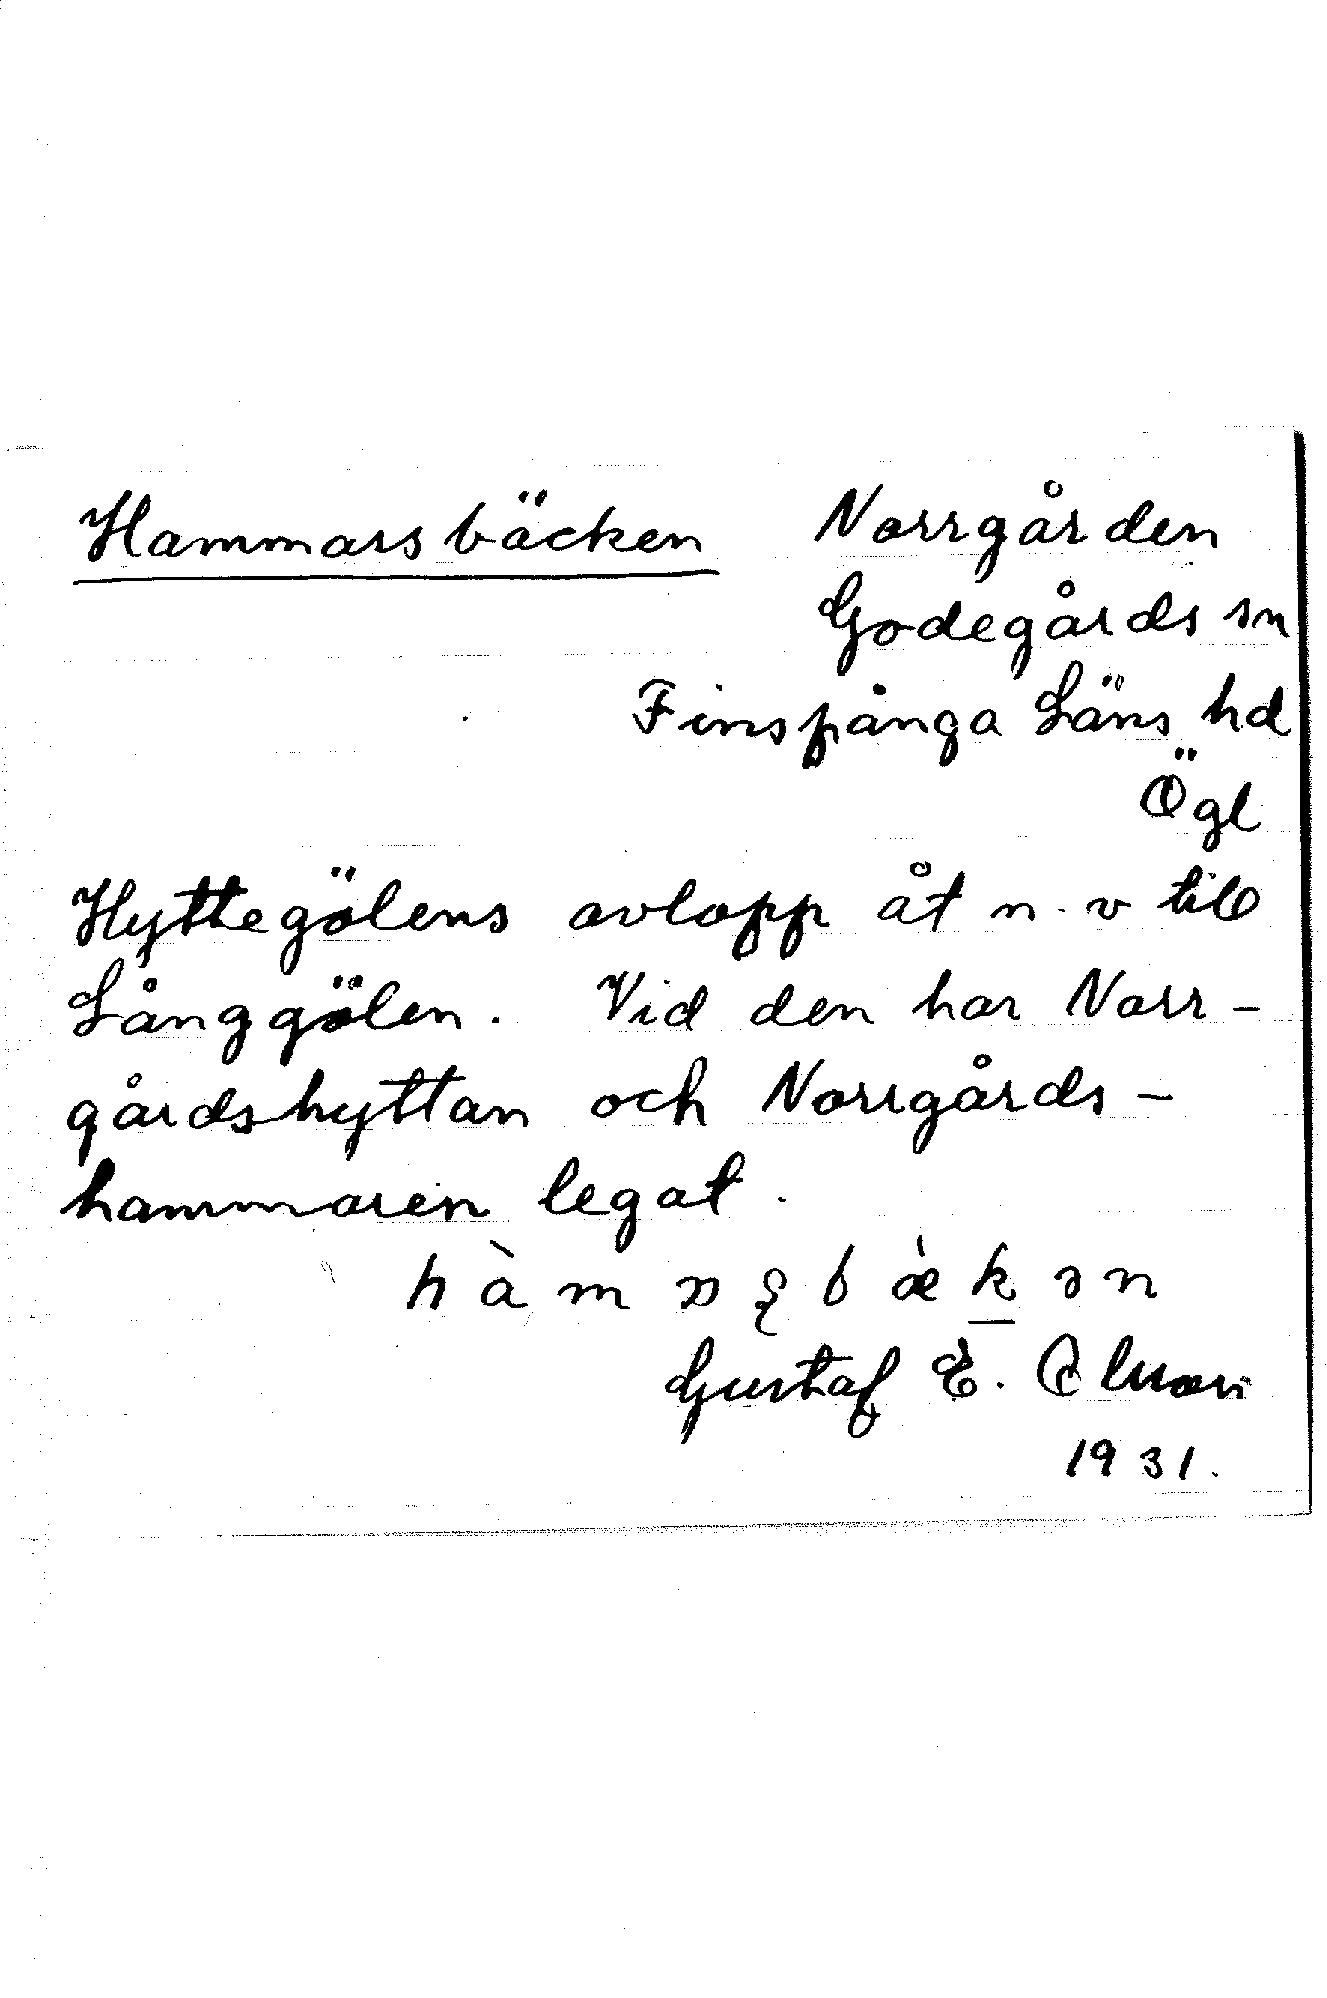 Hammarsbäcken Norrgården
Godegårds sn
Finspånga Läns hd
Ögl
Hyttegölens avlopp åt n.v till
Långgölen. Vid den har Norr-
gårdshyttan och Norrgårds-
hammaren legat.
Gustaf E.
1931.